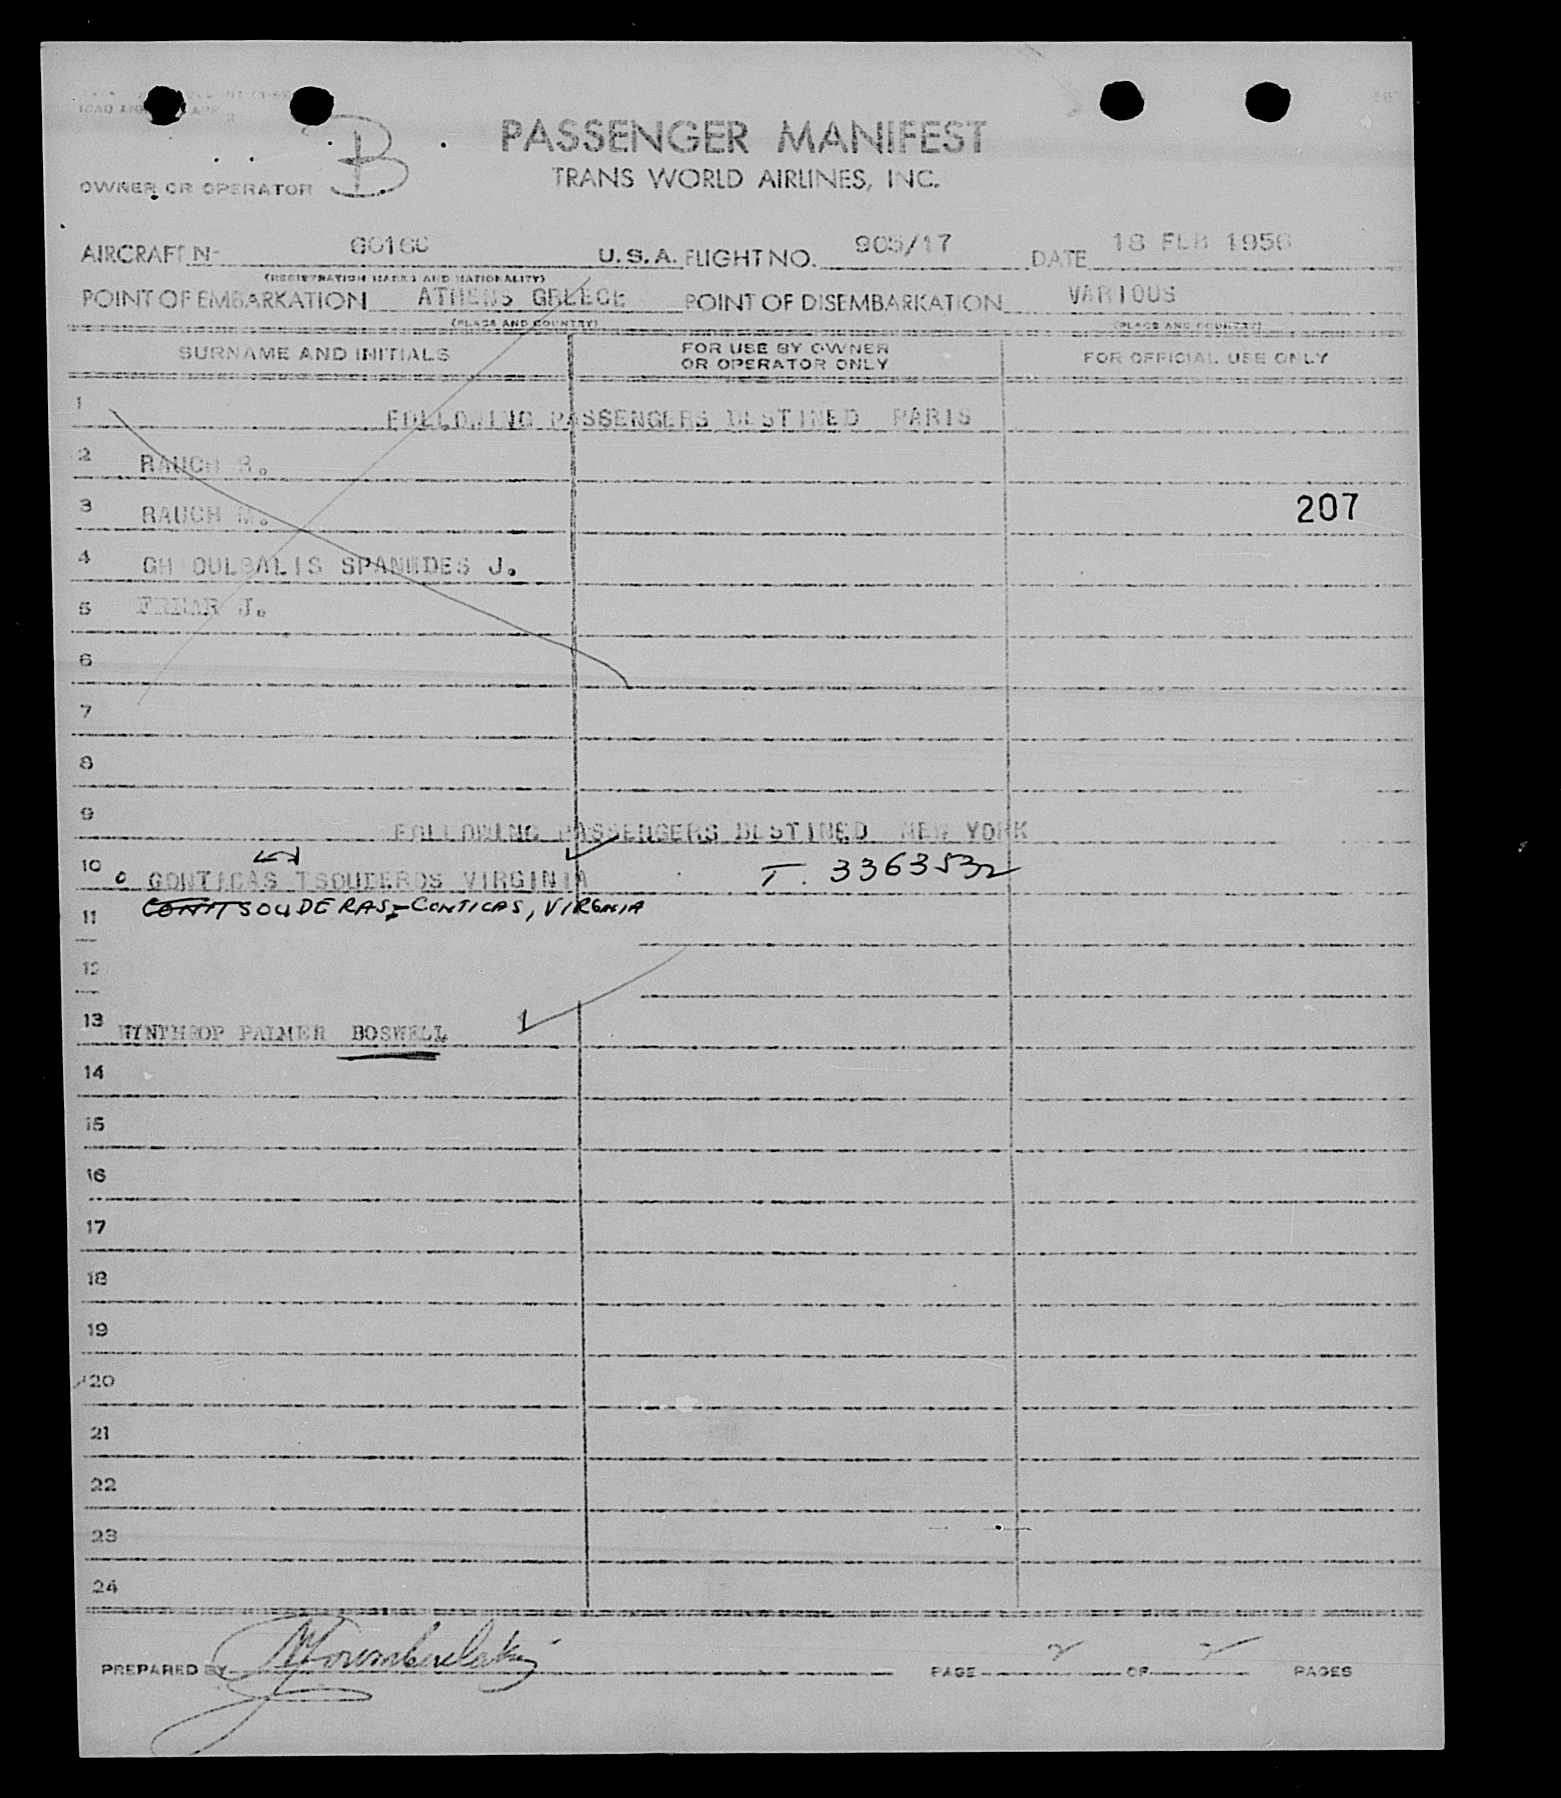 B
PASSENGER MANIFEST
OWNER OR OPERATOR
TRANS WORLD AIRLINES, INC.
AIRCRAFT N- 6016C U.S.A. FLIGHT NO. 905/17 DATE 18 FEB 1956
(REGISTRATION MARKS AND NATIONALITY)
POINT OF EMBARKATION ATHENS GREECE POINT OF DISEMBARKATION VARIOUS
(PLACE AND COUNTRY) (PLACE AND COUNTRY)
SURNAME AND INITIALS FOR USE BY OWNER OR OPERATOR ONLY FOR OFFICIAL USE ONLY
1 FOLLOWING PASSENGERS DESTINED PARIS
2 RAUCH R.
3 RAUCH M. 207
4 GHIOULBALIS SPANUDES J.
5 FREAR J.
6
7
8
9 FOLLOWING PASSENGERS DESTINED NEW YORK
10 GONTICAS TSOUDEROS VIRGINIA T. 3363532
11 TSOUDERAS-CONTICAS, VIRGINIA
12
13 WINTHROP PALMER BOSWELL
14
15
16
17
18
19
20
21
22
23
24
PREPARED BY PAGE 2 OF 2 PAGES